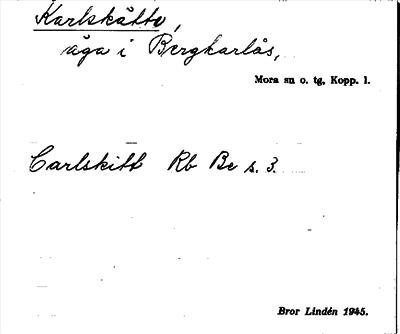 Karlskåtte,
äga i Bergkarlås,
Mora sn o. tg, Kopp. l.
Carlskitt Rb Be s. 3.
Bror Lindén 1945.